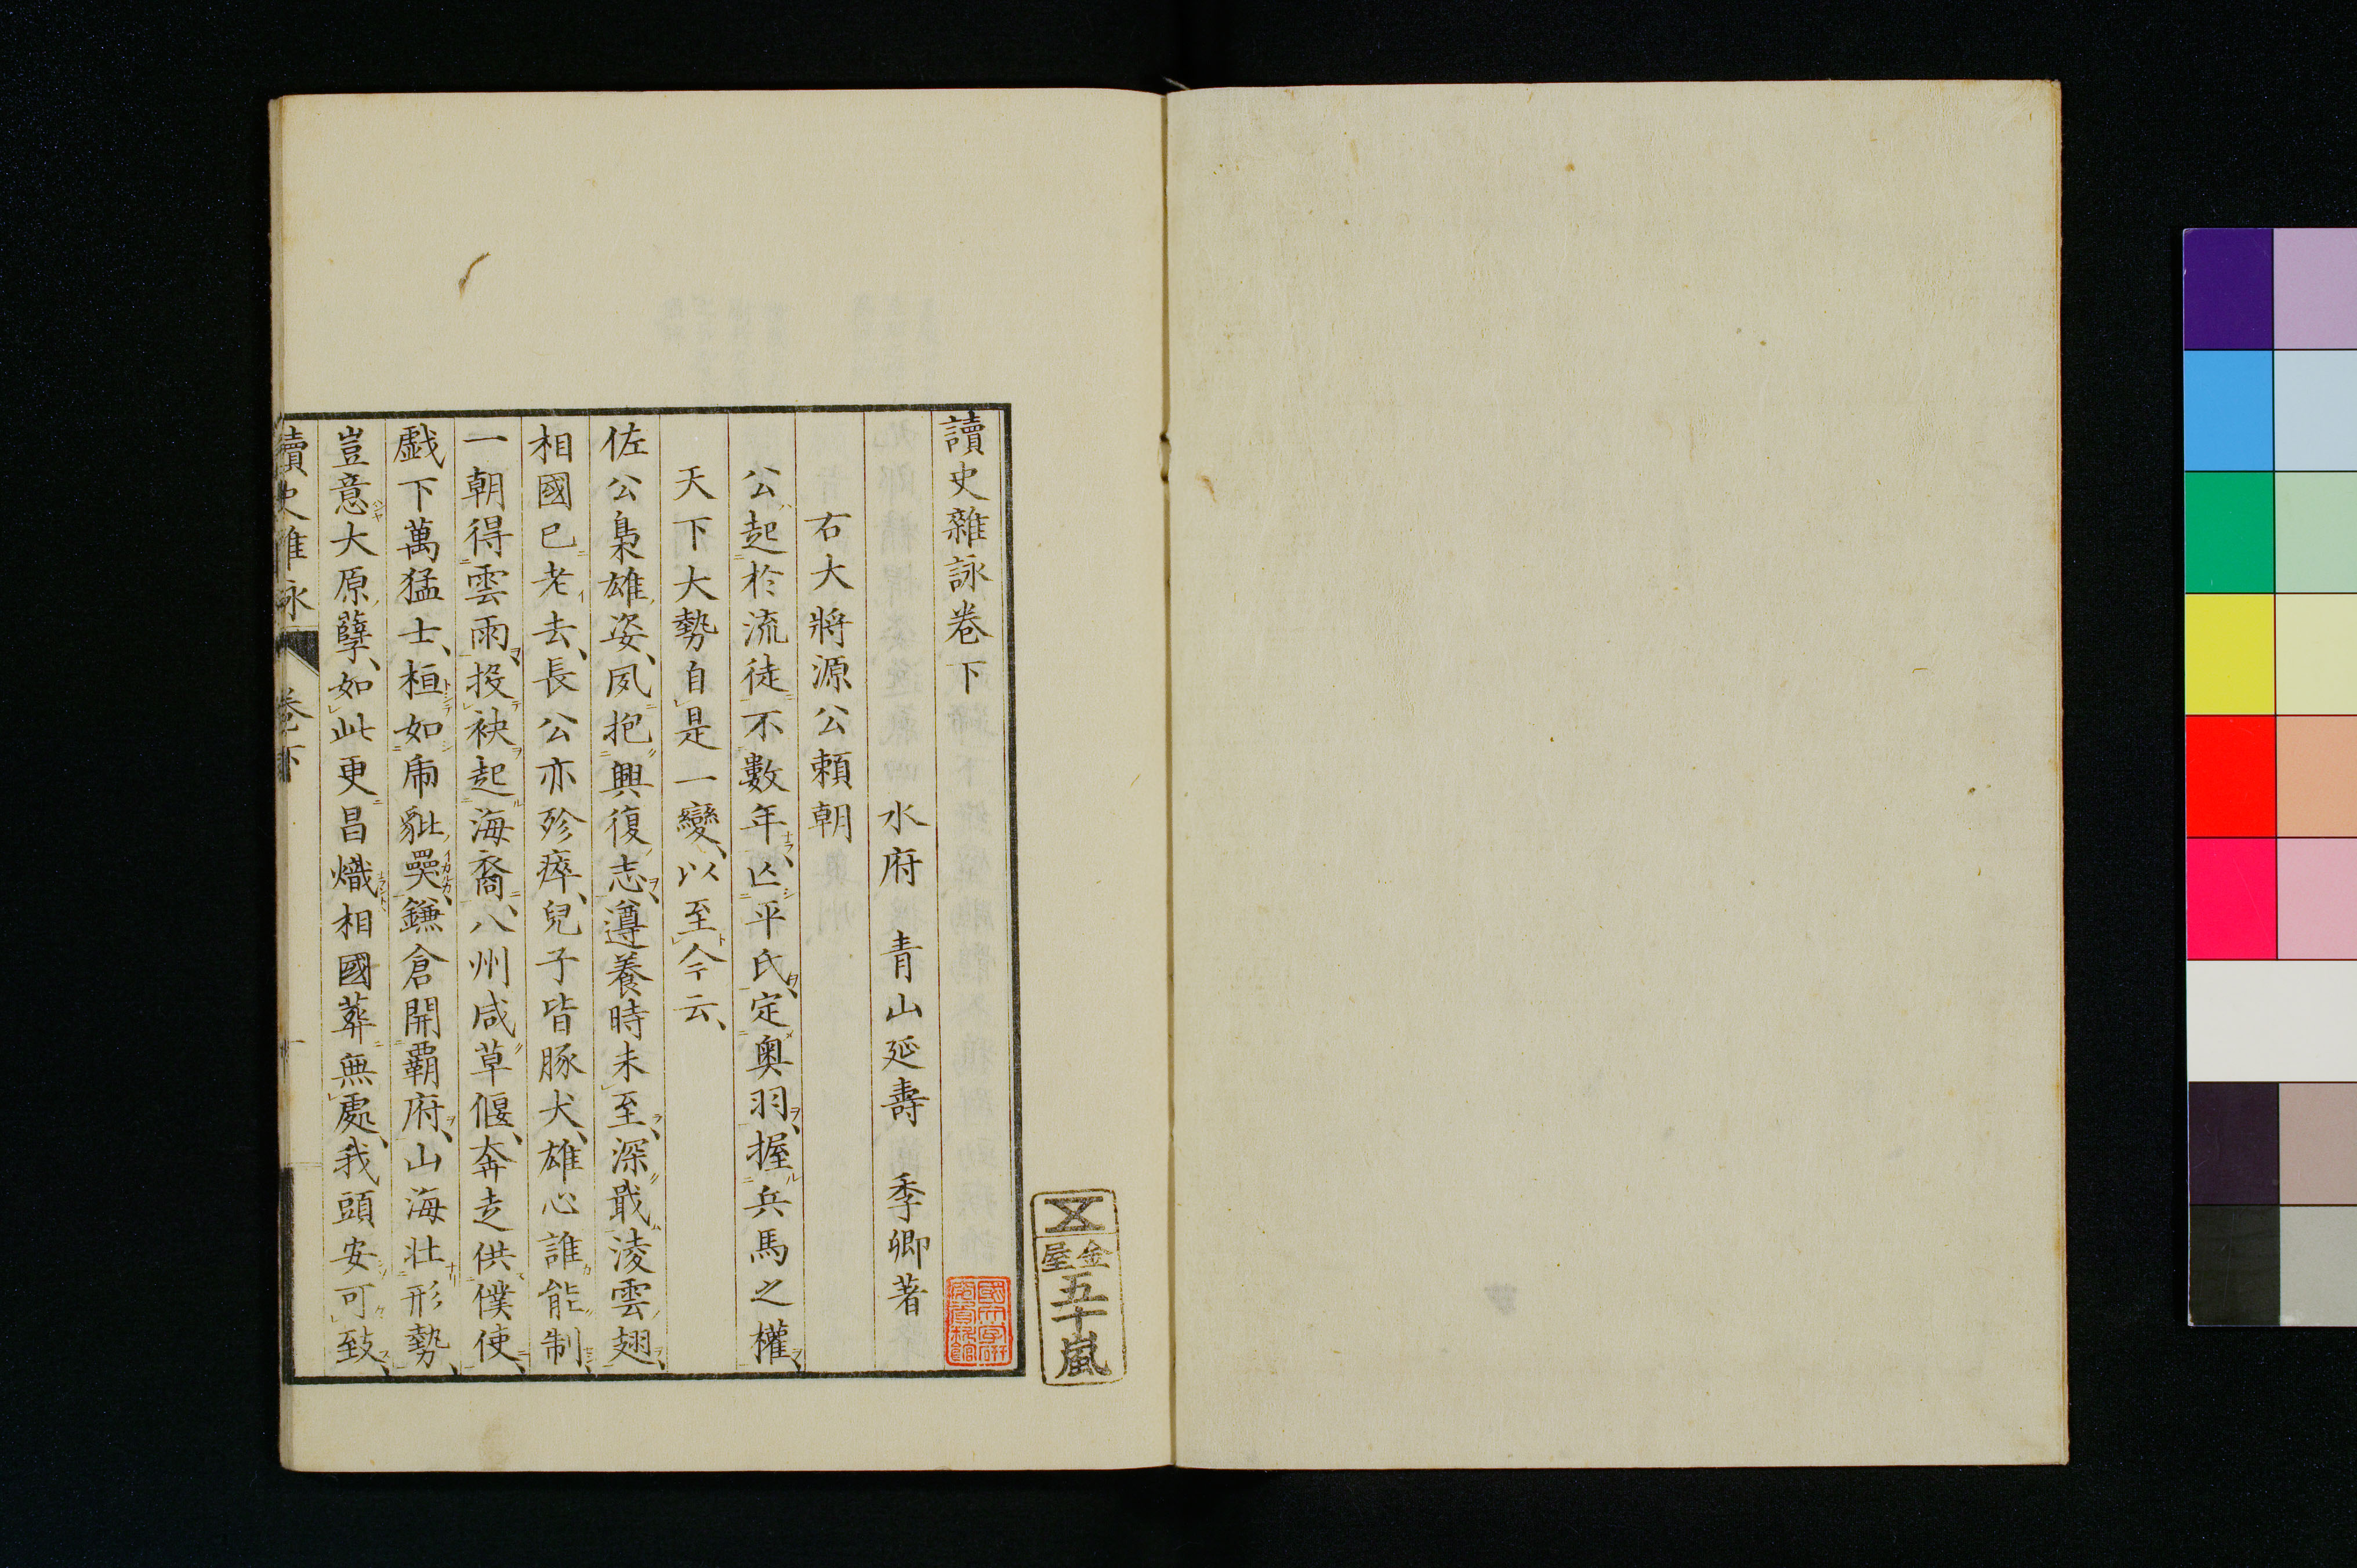 讀史雜詠卷下
水府 青山延壽 季卿著
右大將源公頼朝
公起於流徒不數年亾平氏定奥羽握兵馬之權
天下大勢自是一變以至今云
佐公梟雄姿夙抱興復志遵養時未至深戢淩雲翅
相國已老去長公亦殄瘁兒子皆豚犬雄心誰能制
一朝得雲雨投袂起海裔八州咸草偃奔走供僕使
戯下萬猛士桓如虎貔奰鎌倉開覇府山海壮形勢
豈意大原孽如此更昌熾相國葬無處我頭安可致
讀史雜詠 卷下 一
金屋
五十嵐